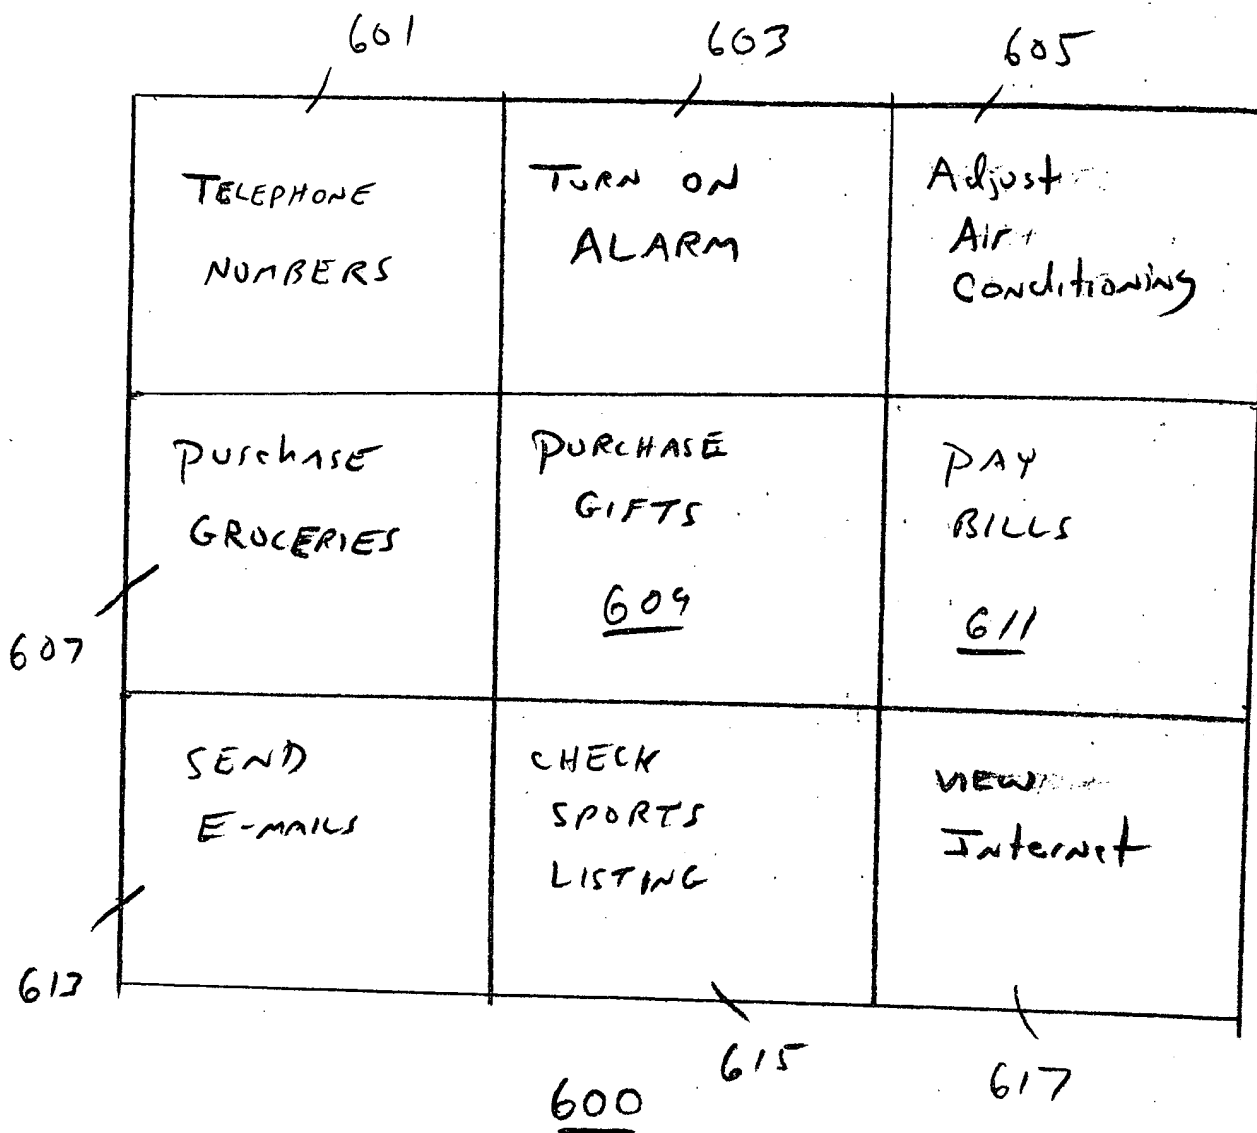 601 603 605
TELEPHONE
NUMBERS
TURN ON
ALARM
Adjust
Air
Conditioning
Purchase
GROCERIES
607
PURCHASE
GIFTS
609
PAY
BILLS
611
SEND
E-MAILS
613
CHECK
SPORTS
LISTING
615
VIEW
Internet
617
600